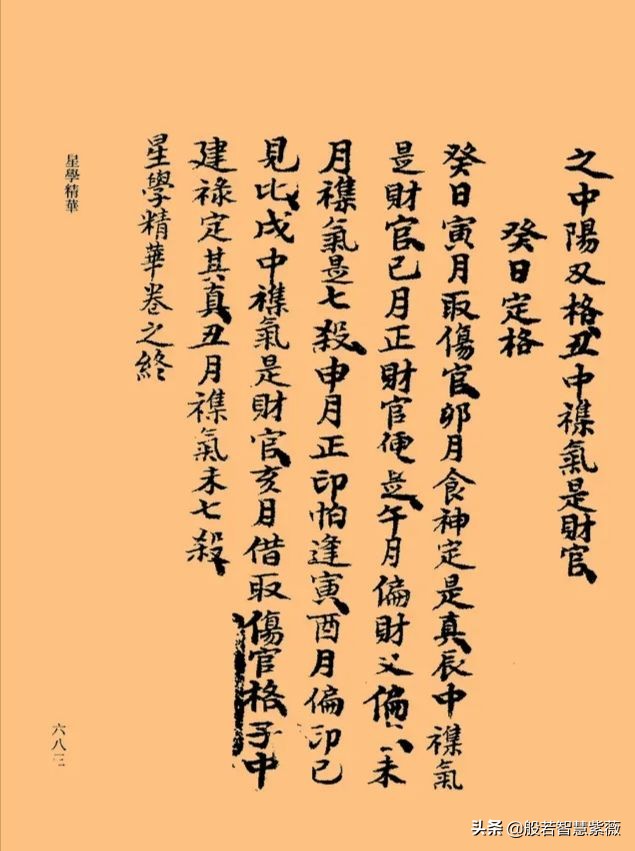 之中陽刄格丑中襍氣是財官
癸日定格
癸日寅月取傷官卯月食神定是真辰中襍氣
是財官已月正財官便是午月偏財 偏 未
月襍氣是七殺申月正印怕逢寅酉月偏印已
見比戌中襍氣是財官亥月借取傷官格子中
建祿定其真丑月襍氣未七殺
星學精華卷之終
星學精華
六八三
头条 @般若智慧紫薇